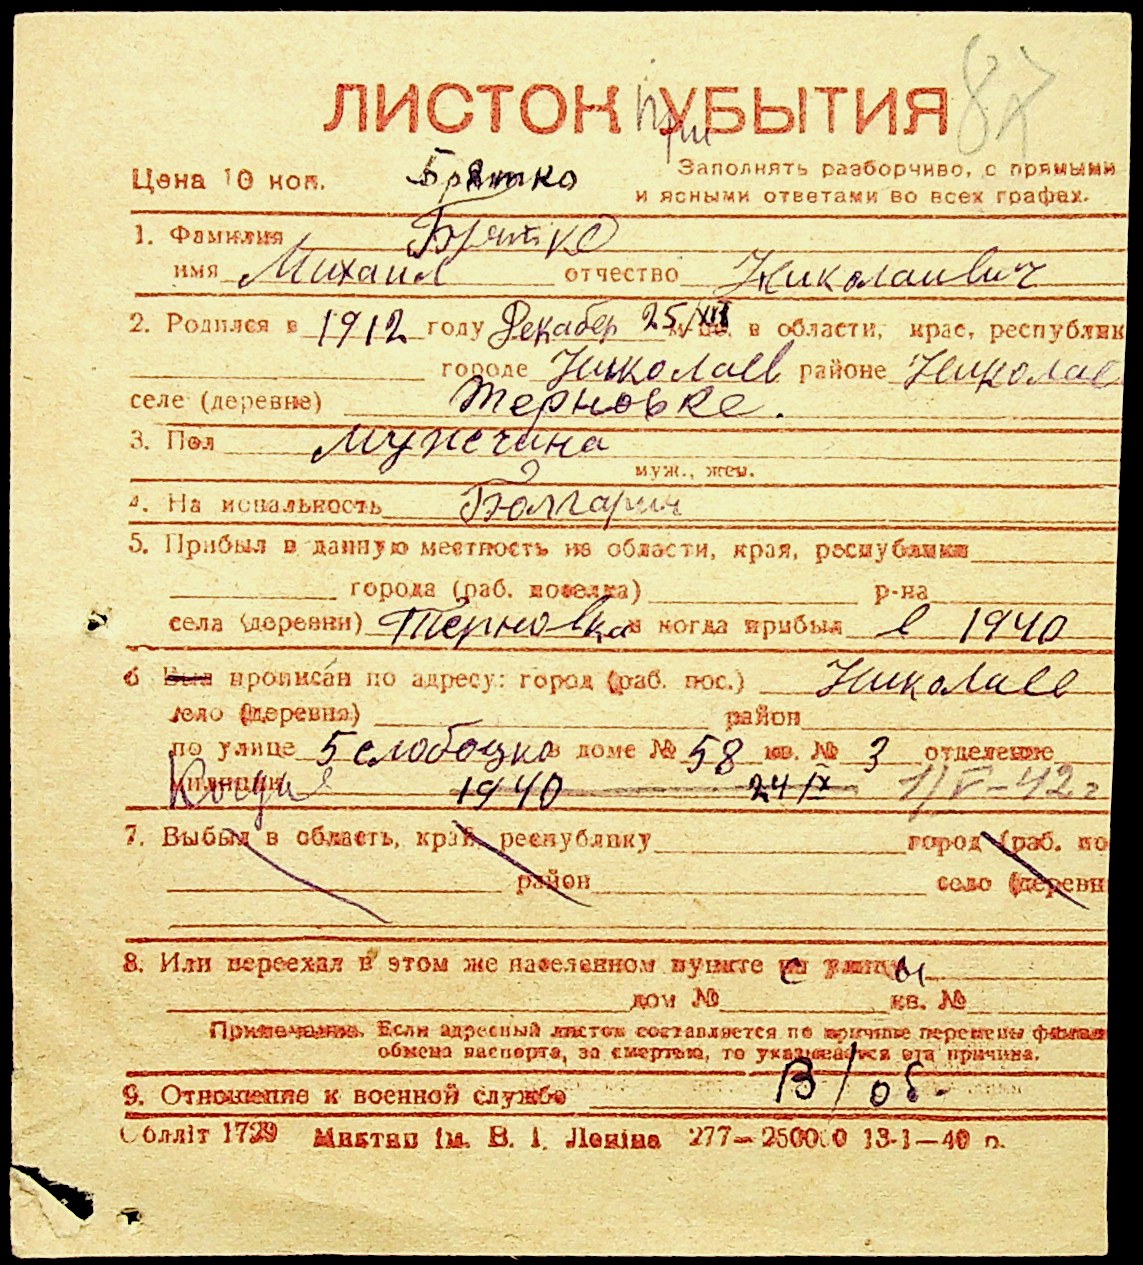 87
ЛИСТОК УБЫТИЯ
при
Цена 10 коп. Брятко Заполнять разборчиво, с прямыми
и ясными ответами во всех графах.
1. Фамилия Брятко
имя Михаил отчество Николаивич
2. Родился в 1912 году Декабер 25/XII м-це в области, крае, республик
городе Николаев районе Николае
селе (деревне) Терновке.
3. Пол мужчина
муж., жен.
4. Национальность Болгарин
5. Прибыл в данную местность из области, края, республики
города (раб. поселка) р-на
села (деревни) Терновка и когда прибыл в 1940
6 Был прописан по адресу: город (раб. пос.) Николаев
село (деревня) район
по улице 5 слобоцка в доме № 58 кв. № 3 отделение
милиции Когда 1940 24/IX 1/V-42 г
7. Выбыл в область, край, республику город (раб. по
район село (деревн
8. Или переехал в этом же населенном пункте на улицу
дом № кв. №
Примечание. Если адресный листок составляется по причине перемены фамили
обмена паспорта, за смертью, то указывается эта причина.
9. Отношение к военной службе В/об-
Облліт 1729 Миктип ім. В. І. Леніна 277—250000 13-1—40 р.